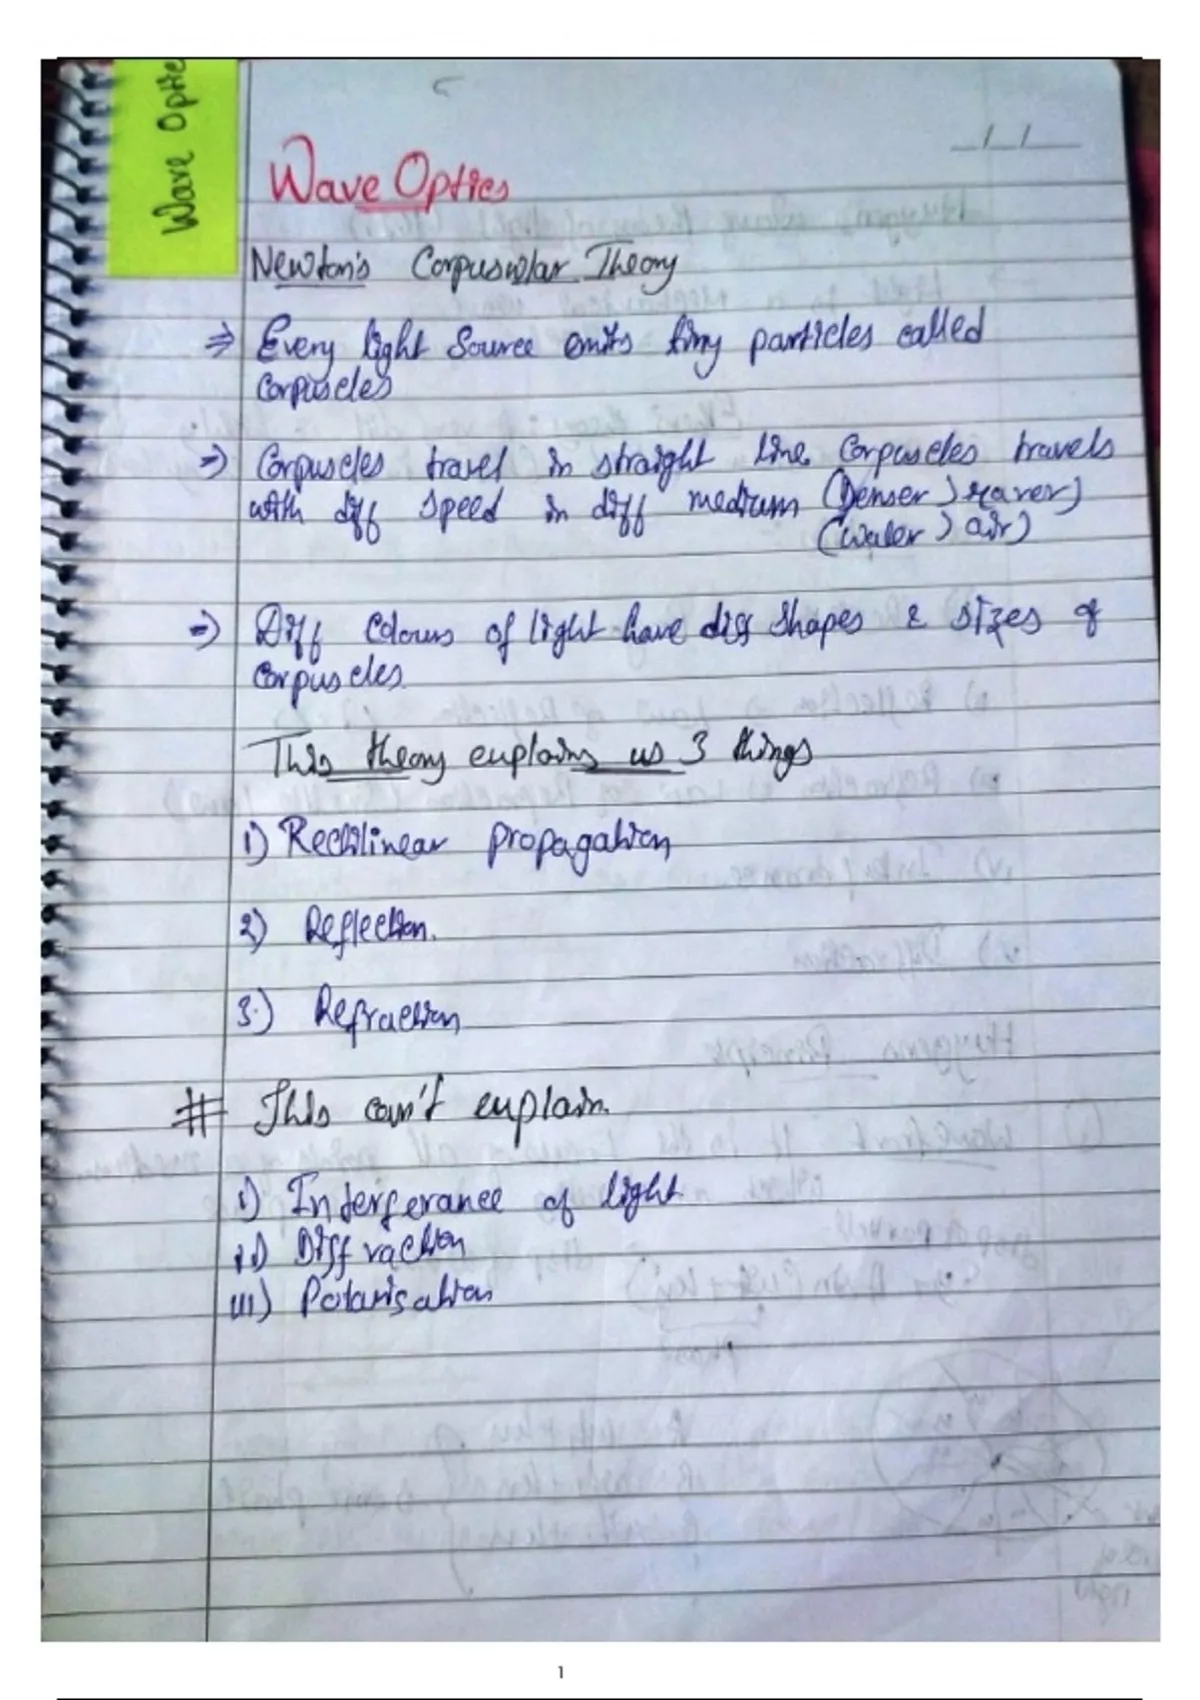 Wave Optic
_/_/_
Wave Optics
Newton's Corpuscular Theory
⇒ Every light Source emits tiny particles called
Corpuscles
⇒) Corpuscles travel in straight line. Corpuscles travels
with diff speed in diff medium (Denser > rarer)
(water > air)
⇒) Diff Colours of light have diff shapes & sizes of
Corpuscles.
This theory explains us 3 things
1) Rectilinear propagation
2) Reflection.
3.) Refraction
# This can't explain.
i) Interferance of light
ii) Diffraction
iii) Polarisation
1